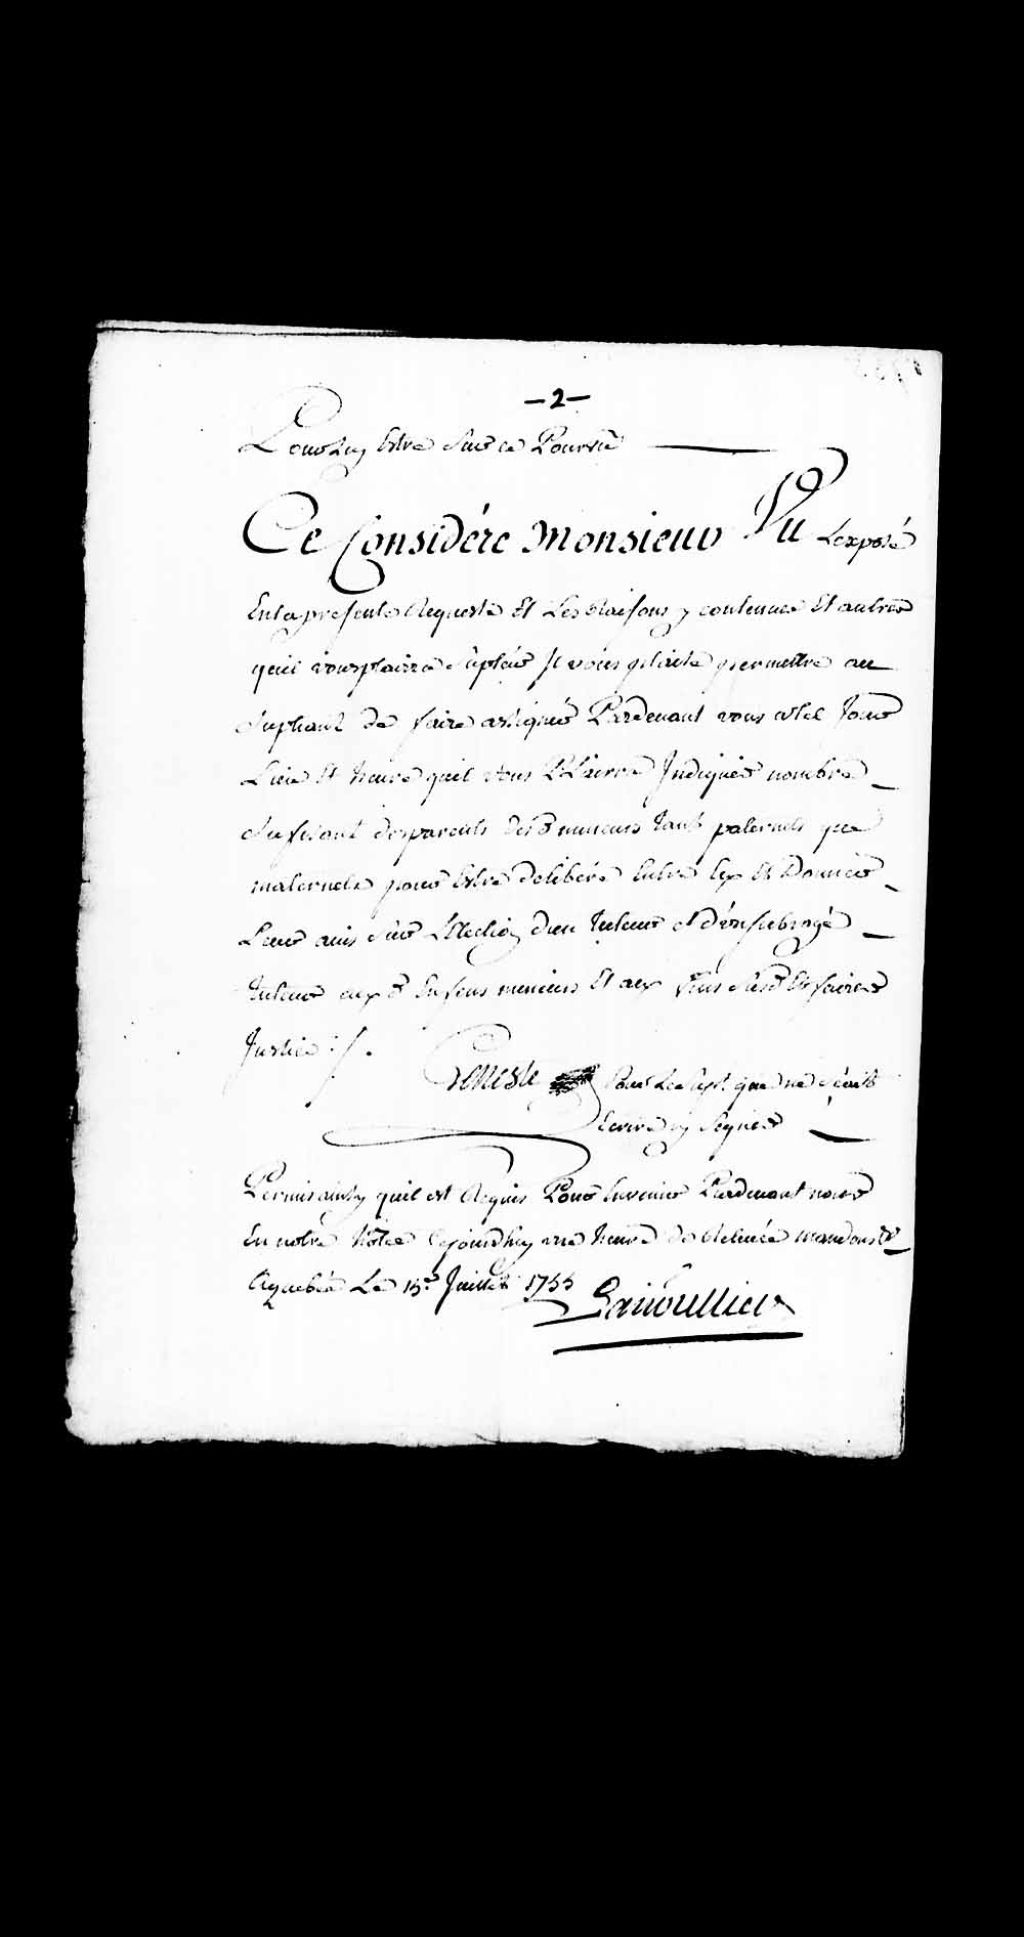 —2—
Pour Luy Estre Sur ce Pourvû
Ce Considéré Monsieur Vu Lexposé
En La presente Requeste Et Les Raisons y contenues Et autres
quil vous plaira supléer Il vous plaise permettre au
Supliant de faire assigner Pardevant vous a tel Jour
Lieu Et heure quil vous Plaira Indiquer nombre
Sufisant des parents des d. mineurs tant paternels que
maternels pour Estre deliberé Entre Eux Et Donner
Leur avis Sur L'Election d'un tuteur et d'un subrogé
tuteur aux d. Enfans mineurs Et aux fins Et faire
Justice ./.
Geneste Pour Le Supt. qui ne Sçait
Ecrire ny Signer
Permis ainsy quil est Requis Pour Enveniur Pardevant nous
En notre hôtel Cejourdhuy une heure de Relevée mandons &
A quebec Le 15e Juillet 1755
Lanoullier